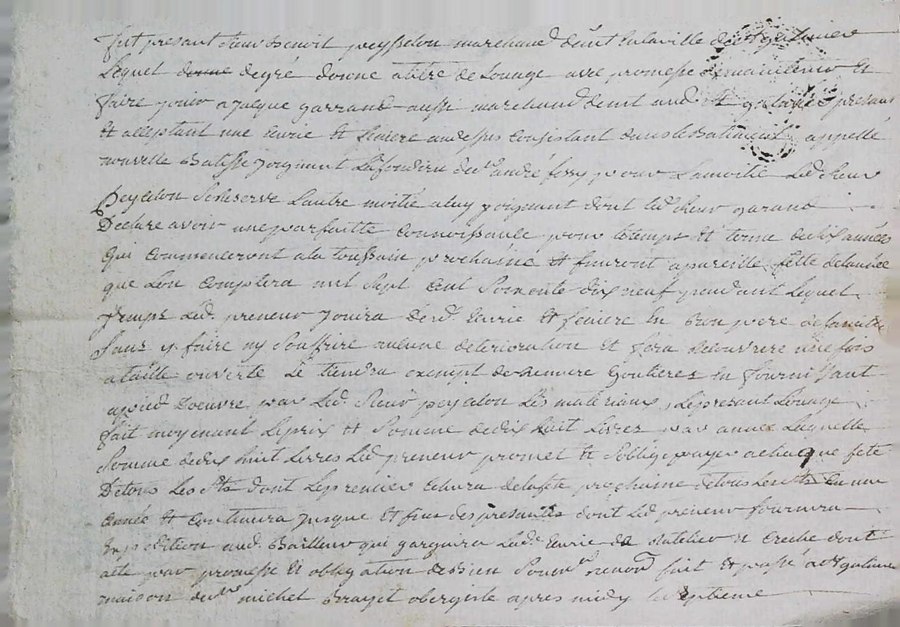 fut presant sieur benoit peysselon marchand deint en la ville de st galmier
Lequel degré donne a titre de Louage avec promesse de maintenir et
faire jouir a jaque garrand aussi marchand deint aud. st galmier presant
et acceptant une Ecurie et feniere au dessus Consistant dans le Batiment appellé
nouvelle Batisse joignant Le fond du sr andré fery pour La moitié Led sieur
Peyselon se reserve Lautre moitié a luy joignant dont led sieur garand
Declare avoir une parfaitte Connoissance pour le temps et terme de dix années
qui Commenceront a la toussain prochaine et finiront a pareille fette de lannée
que Lon Comptera mil sept Cent Soixante dix neuf pendant Lequel
temps Led. preneur jouira de lad. Ecurie et feniere En bon pere de famille
sans y faire ny souffrire aucune deterioration et fera recouvrire une fois
a taille ouverte Le tiendra exempt de goutieres En fournissant
par Led. Sieur peyselon Les materiaux, Le presant Louage
fait moyenant Le prix et Somme de dix huit Livres par année Laquelle
Somme de dix huit Livres Led preneur promet et soblige payer a chaque fete
De tous Les sts dont Le premier Echera de la fete prochaine de tous Les sts En une
année et Continuera jusque et fin des presantes dont Led. preneur fournira
Expedition aud. Bailleur qui garguira Lade Ecurie de Ratelier et Creche dont
acte par promesse et obligation de biens Soum. renon. fait et passé a st galmier
maison du sr michel aubergiste apres midy Le septieme